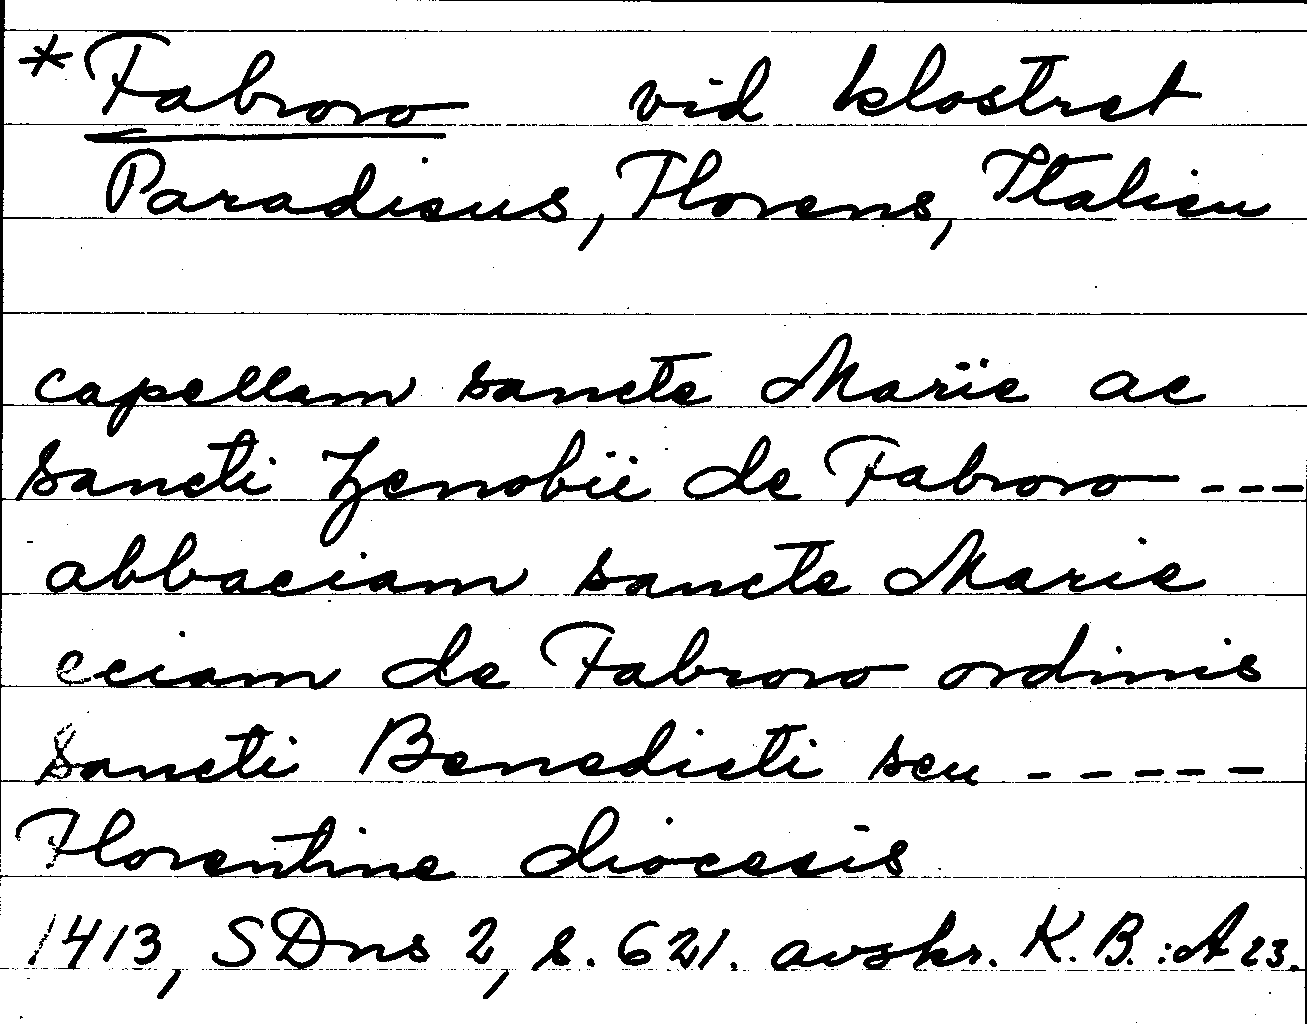 *Fabroro vid klostret
Paradisus, Florens, Italien
capellam sancte Marïe ac
sancti Zenobïï de Fabroro ---
abbaciam sancte Marie
eciam de Fabroro ordinis
sancti Benedicti seu -----
Florentine diocesis
1413, SDns 2, s. 621. avskr. K.B.:A 23.